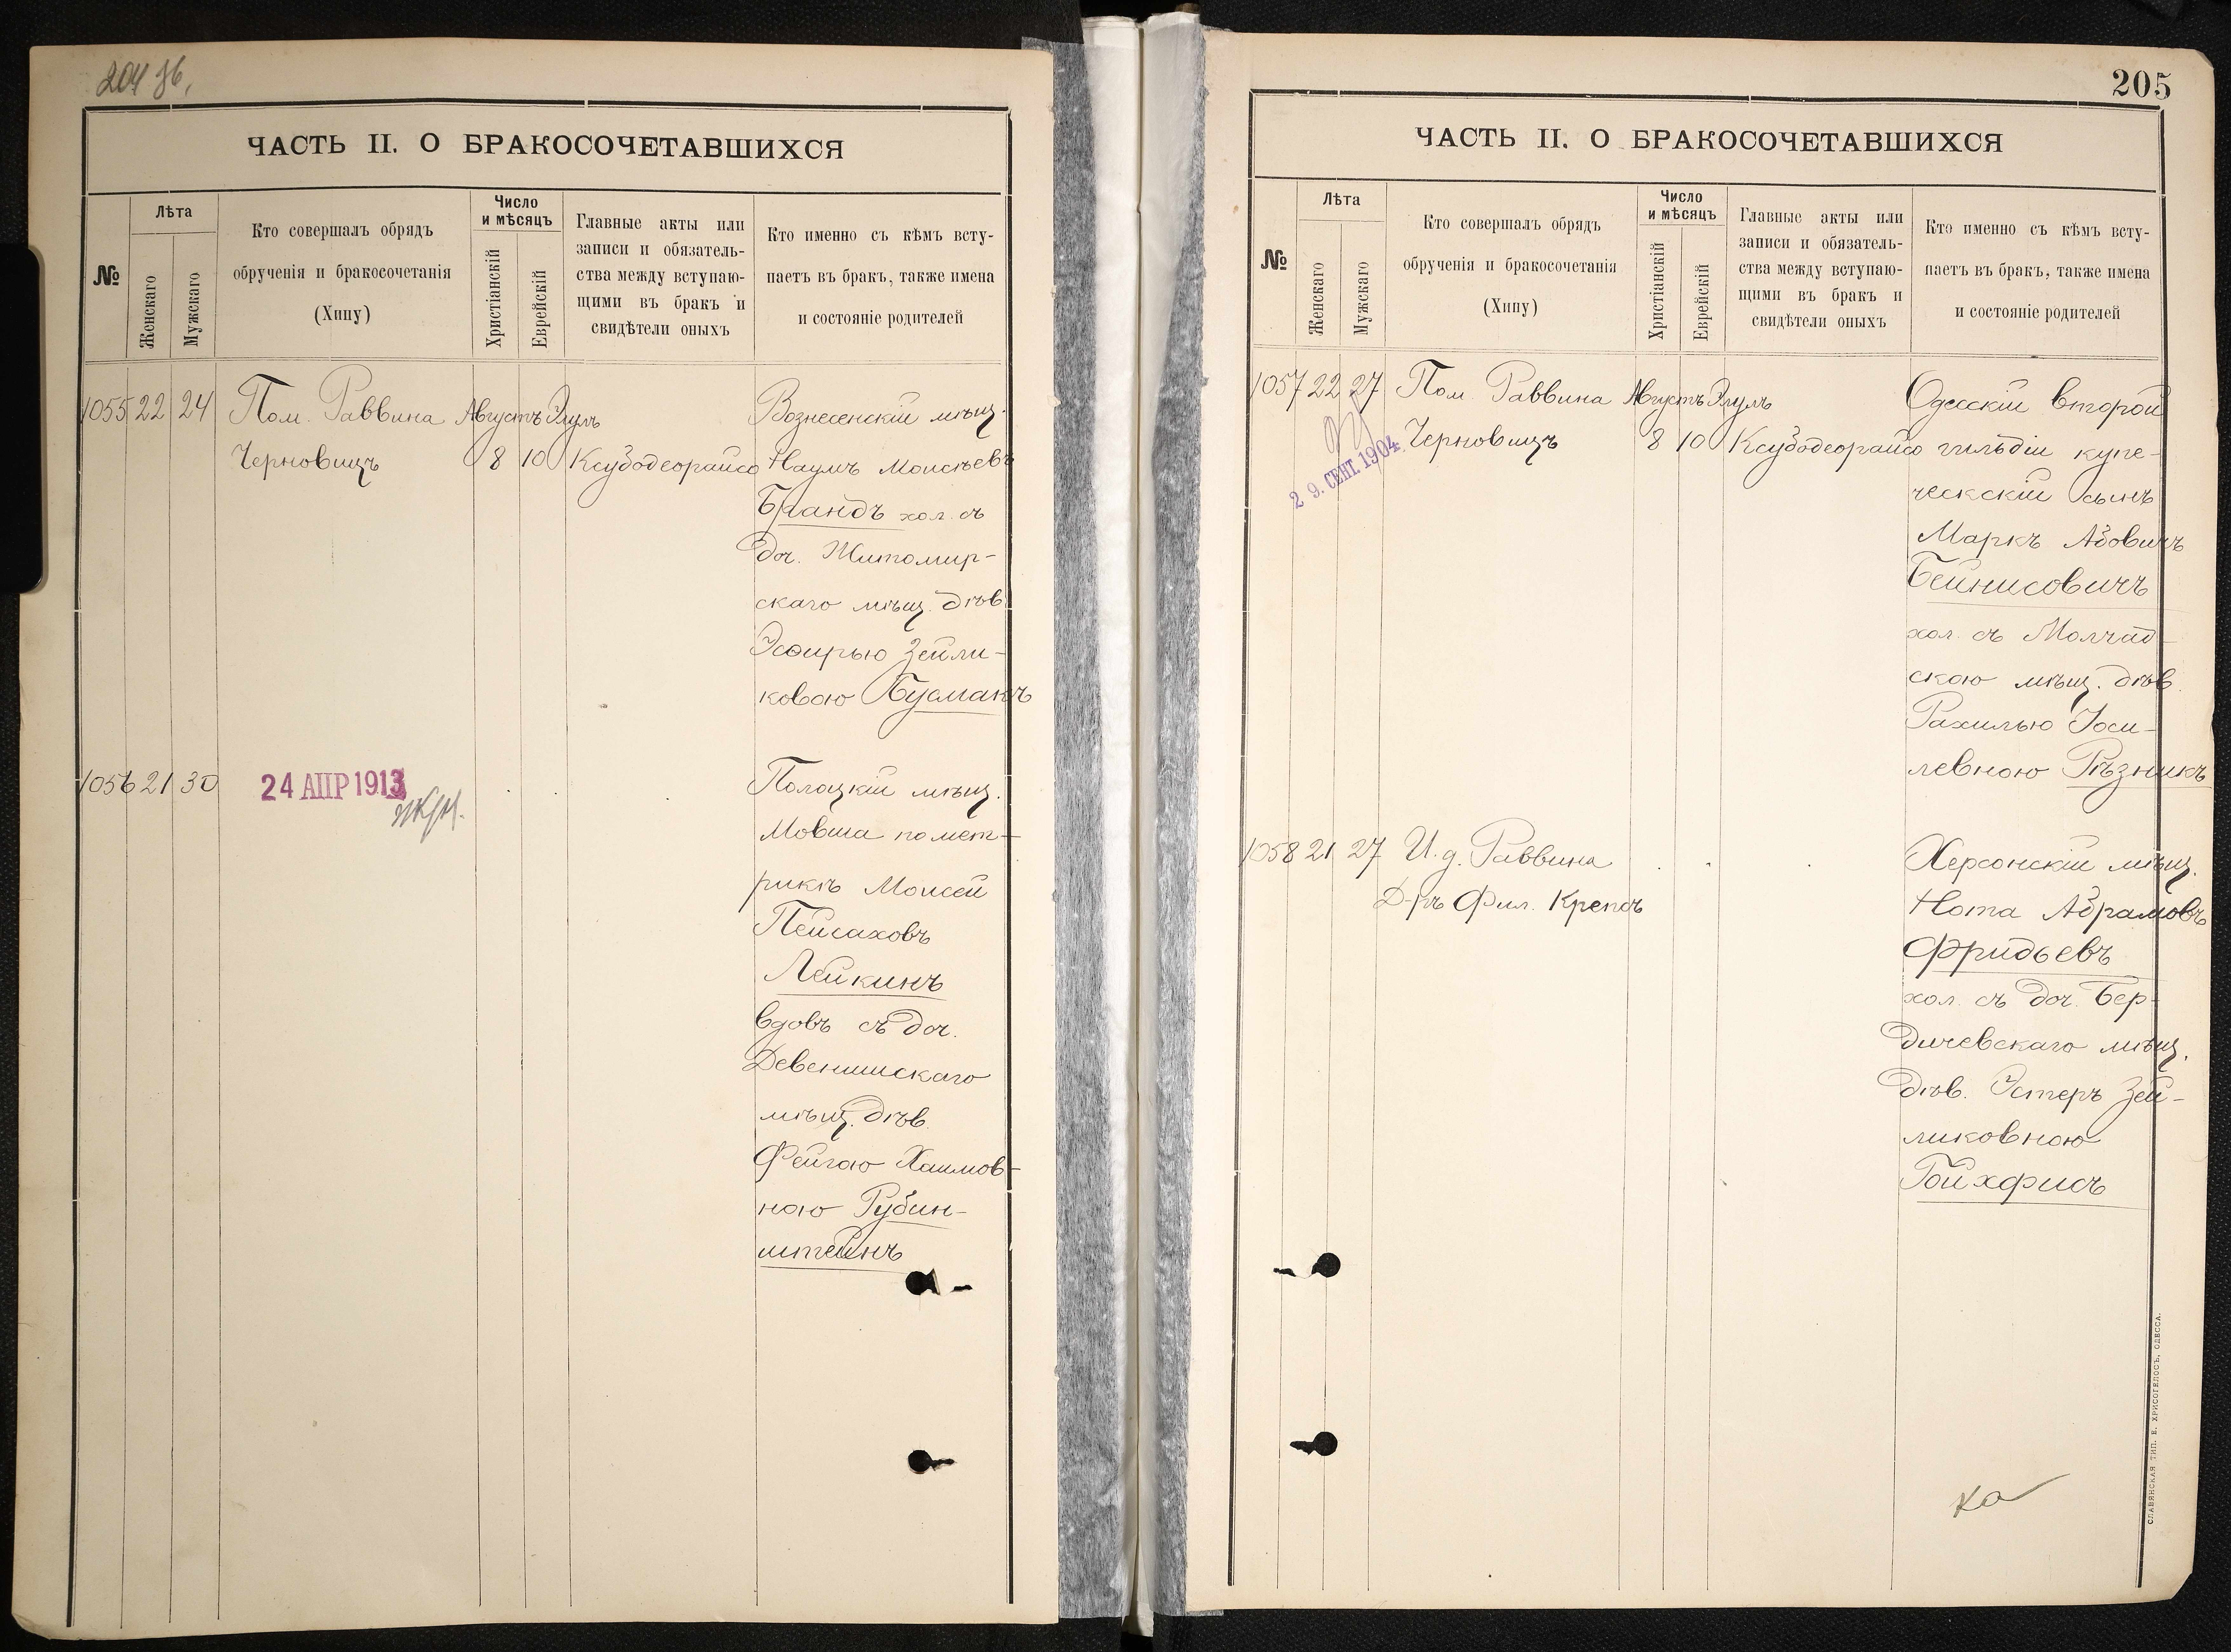 204 зб.
ЧАСТЬ II. О БРАКОСОЧЕТАВШИХСЯ
№
Лѣта
Женскаго
Мужскаго
Кто совершалъ обрядъ
обрученія и бракосочетанія
(Хипу)
Число
и мѣсяцъ
Христіанскій
Еврейскій
Главные акты или
записи и обязатель-
ства между вступаю-
щими въ бракъ и
свидѣтели оныхъ
Кто именно съ кѣмъ всту-
паетъ въ бракъ, также имена
и состояніе родителей
1055 22 24 Пом. Раввина Августъ Элулъ Вознесенскій мѣщ.
Черновицъ 8 10 Ксубодеорайсо Наумъ Моисѣевъ
Брандъ хол. съ
доч. Житомир-
скаго мѣщ. дѣв.
Эсѳирью Зейли-
ковою Бусманъ
1056 21 30 24 АПР 1913 Полоцкій мѣщ.
Мовша по мет-
рикѣ Моисей
Пейсаховъ
Лейкинъ
вдовъ съ доч.
Девенишскаго
мѣщ. дѣв.
Фейгою Хаимов-
ною Рубин-
штейнъ
205
ЧАСТЬ II. О БРАКОСОЧЕТАВШИХСЯ
№
Лѣта
Женскаго
Мужскаго
Кто совершалъ обрядъ
обрученія и бракосочетанія
(Хипу)
Число
и мѣсяцъ
Христіанскій
Еврейскій
Главные акты или
записи и обязатель-
ства между вступаю-
щими въ бракъ и
свидѣтели оныхъ
Кто именно съ кѣмъ всту-
паетъ въ бракъ, также имена
и состояніе родителей
1057 22 27 Пом. Раввина Августъ Элулъ Одесскій второй
29. СЕНТ. 1904 Черновицъ 8 10 Ксубодеорайсо гильдіи купе-
ческскій сынъ
Маркъ Абовичъ
Бейнисовичъ
хол. съ Молчад-
скою мѣщ. дѣв.
Рахилью Иоси-
левною Рѣзникъ
1058 21 27 И. д. Раввина Херсонскій мѣщ.
Д-ръ Фил. Крепсъ Нота Абрамовъ
Фридьевъ
хол. съ доч. Бер-
дичевскаго мѣщ.
дѣв. Эстеръ Зей-
ликовною
Гойхфисъ
СЛАВЯНСКАЯ ТИП. Е. ХРИСОГЕЛОСЪ, ОДЕССА.